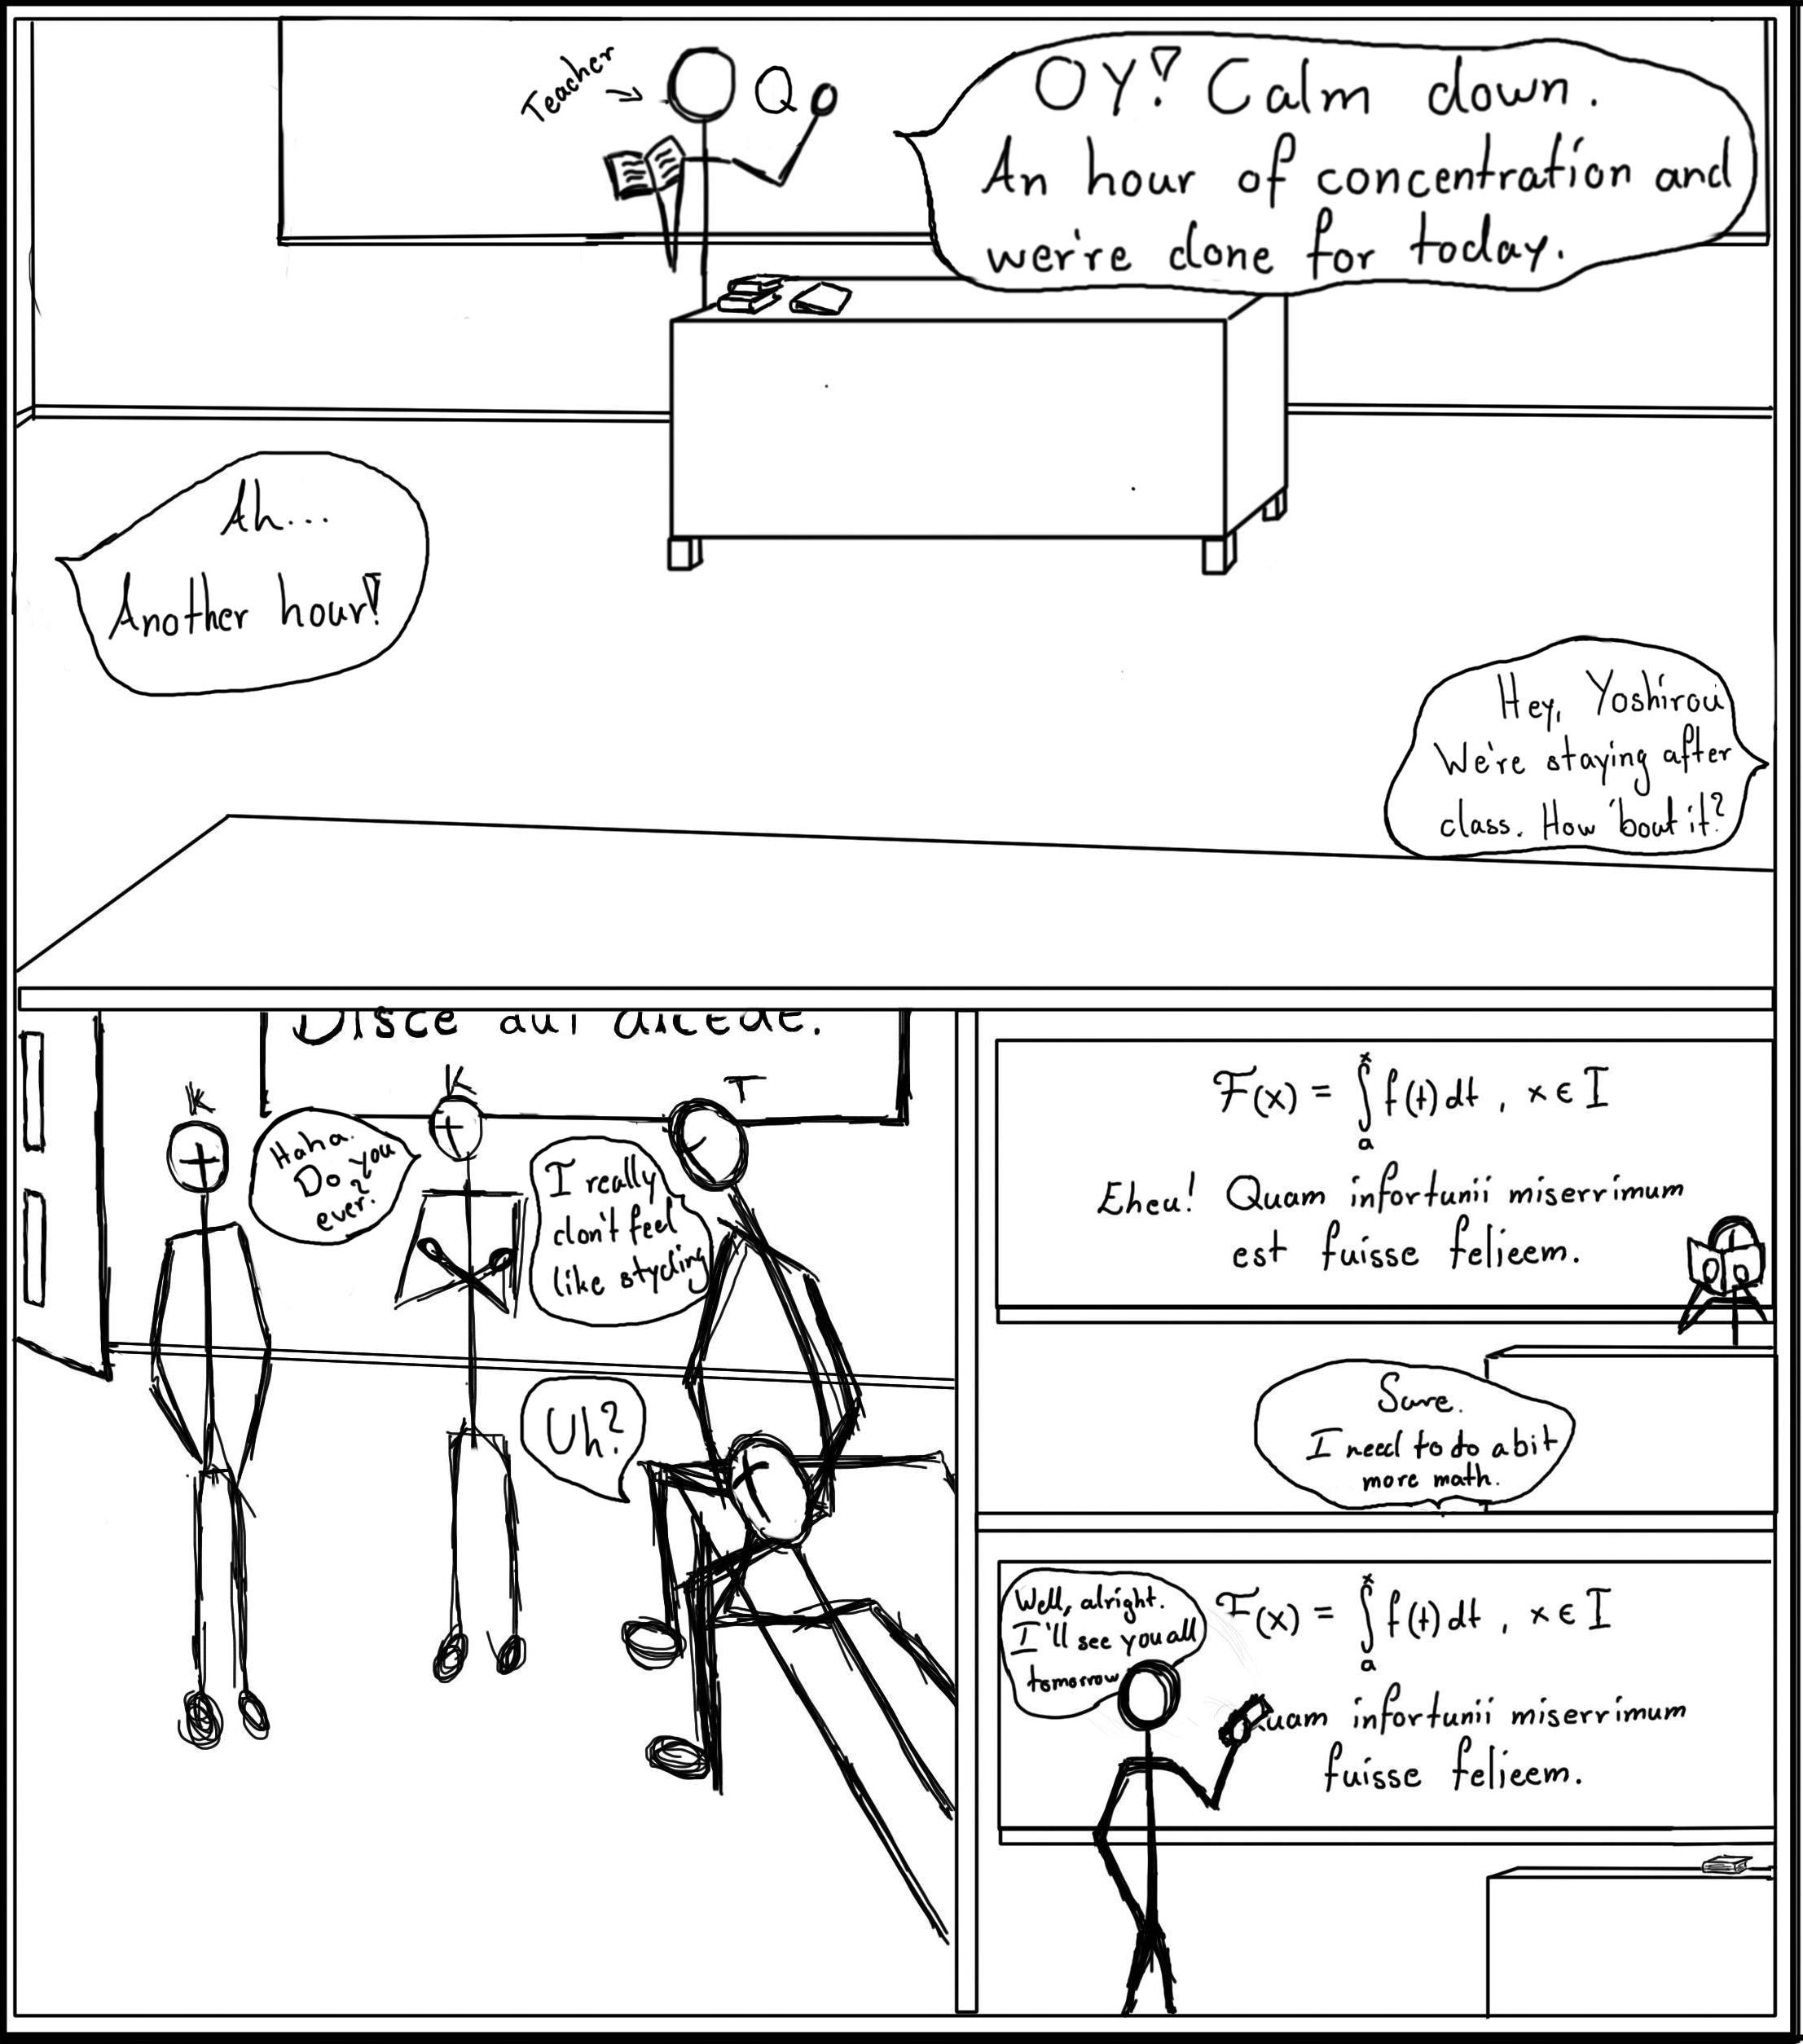 Teacher
Q
OY! Calm down.
An hour of concentration and
wer're done for today.
Ah...
Another hour!
Hey, Yoshirou
We're staying after
class. How 'bout it?
Disce aut
K
K
T
Haha.
Do you
ever?
I really
don't feel
like styding
Uh?
F(x) = ∫ₐˣ f(t) dt , x ∈ I
Eheu! Quam infortunii miserrimum
est fuisse felicem.
Sure.
I need to do a bit
more math.
Well, alright.
I'll see you all
tomorrow
F(x) = ∫ₐˣ f(t) dt , x ∈ I
uam infortunii miserrimum
fuisse felicem.